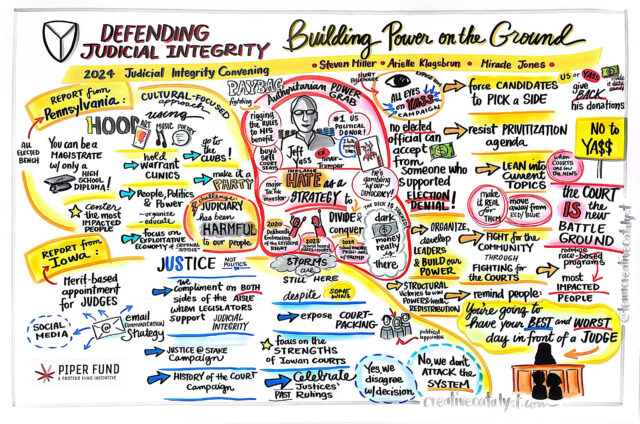 DEFENDING
JUDICIAL INTEGRITY
Building Power on the Ground
• Steven Miller • Arielle Klagsbrun • Miracle Jones •
2024 Judicial Integrity Convening
REPORT from
Pennsylvania:
ALL
ELECTED
BENCH
You can be a
MAGISTRATE
w/only a
HIGH
SCHOOL
DIPLOMA!
center the
most IMPACTED
PEOPLE
CULTURAL-FOCUSED
approach
using
HOOD
ART
MUSIC
POETRY
hold
WARRANT
CLINICS
go to
the CLUBS!
People, Politics
& Power
organize
educate
make it a
PARTY
focus on
EXPLOITATIVE
ECONOMY
challenge
JUDICIARY
has been
HARMFUL
to our people
JUSTICE NOT POLITICS
PAYBAG
fighting
Authoritarian POWER
GRAB
SILENT BILLIONAIRE
rigging
the RULES
to HIS
BENEFIT
buy &
sell COURT
SEATS
Jeff
Yass
#1 US
POLITICAL
DONOR!
ex
never
Trumper
major
TikTok
investor
he's
gambling
w/our
DEMOCRACY!
INFLAME
HATE as a
STRATEGY to
DIVIDE &
conquer
THE DECK IS STACKED
dark
money
really is
there
2020
2023
2024
STORMS are
STILL HERE
ALL EYES
on YASS
CAMPAIGN
force CANDIDATES
to PICK a SIDE
US or YASS
give
BACK
his donations
no elected
official can
accept
from
someone who
supported
ELECTION
DENIAL!
resist PRIVITIZATION
agenda
NO to
YA$$
LEAN into
CURRENT
TOPICS
when
COURTS
are in
the NEWS
make it
REAL for
THEM
move away
from RED/BLUE
the COURT
IS the
new
BATTLE
GROUND
ORGANIZE,
develop
LEADERS
& BUILD our
POWER
FIGHT for the
COMMUNITY
THROUGH
FIGHTING
for the COURTS
race-based
programs
most
IMPACTED
PEOPLE
STRUCTURAL
VICTORIES to WIN
POWER & wealth
REDISTRIBUTION
remind people:
You're going to
have your BEST and WORST
day in front of a JUDGE
REPORT from
Iowa:
Merit-based
appointment
for JUDGES
SOCIAL
MEDIA
email
(COMMUNICATION)
strategy
compliment on BOTH
sides of the AISLE
when LEGISLATORS
SUPPORT JUDICIAL
INTEGRITY
JUSTICE @ STAKE
Campaign
HISTORY of the COURT
Campaign
despite SOME
WINS
expose COURT-
PACKING
political
appointee
focus on the
STRENGTHS
of Iowan COURTS
Celebrate
Justices'
PAST Rulings
Yes, we
disagree
w/decision
No, we don't
ATTACK the
SYSTEM
PIPER FUND
A PROTEUS FUND INITIATIVE
creativecatalyst.com